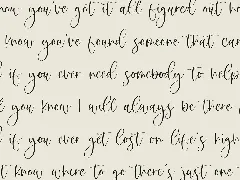 you've got it all figured out
know you've found someone that can
if you ever need somebody to help
you know I will always be there
if you ever get lost on life's high
know where to go there's just one